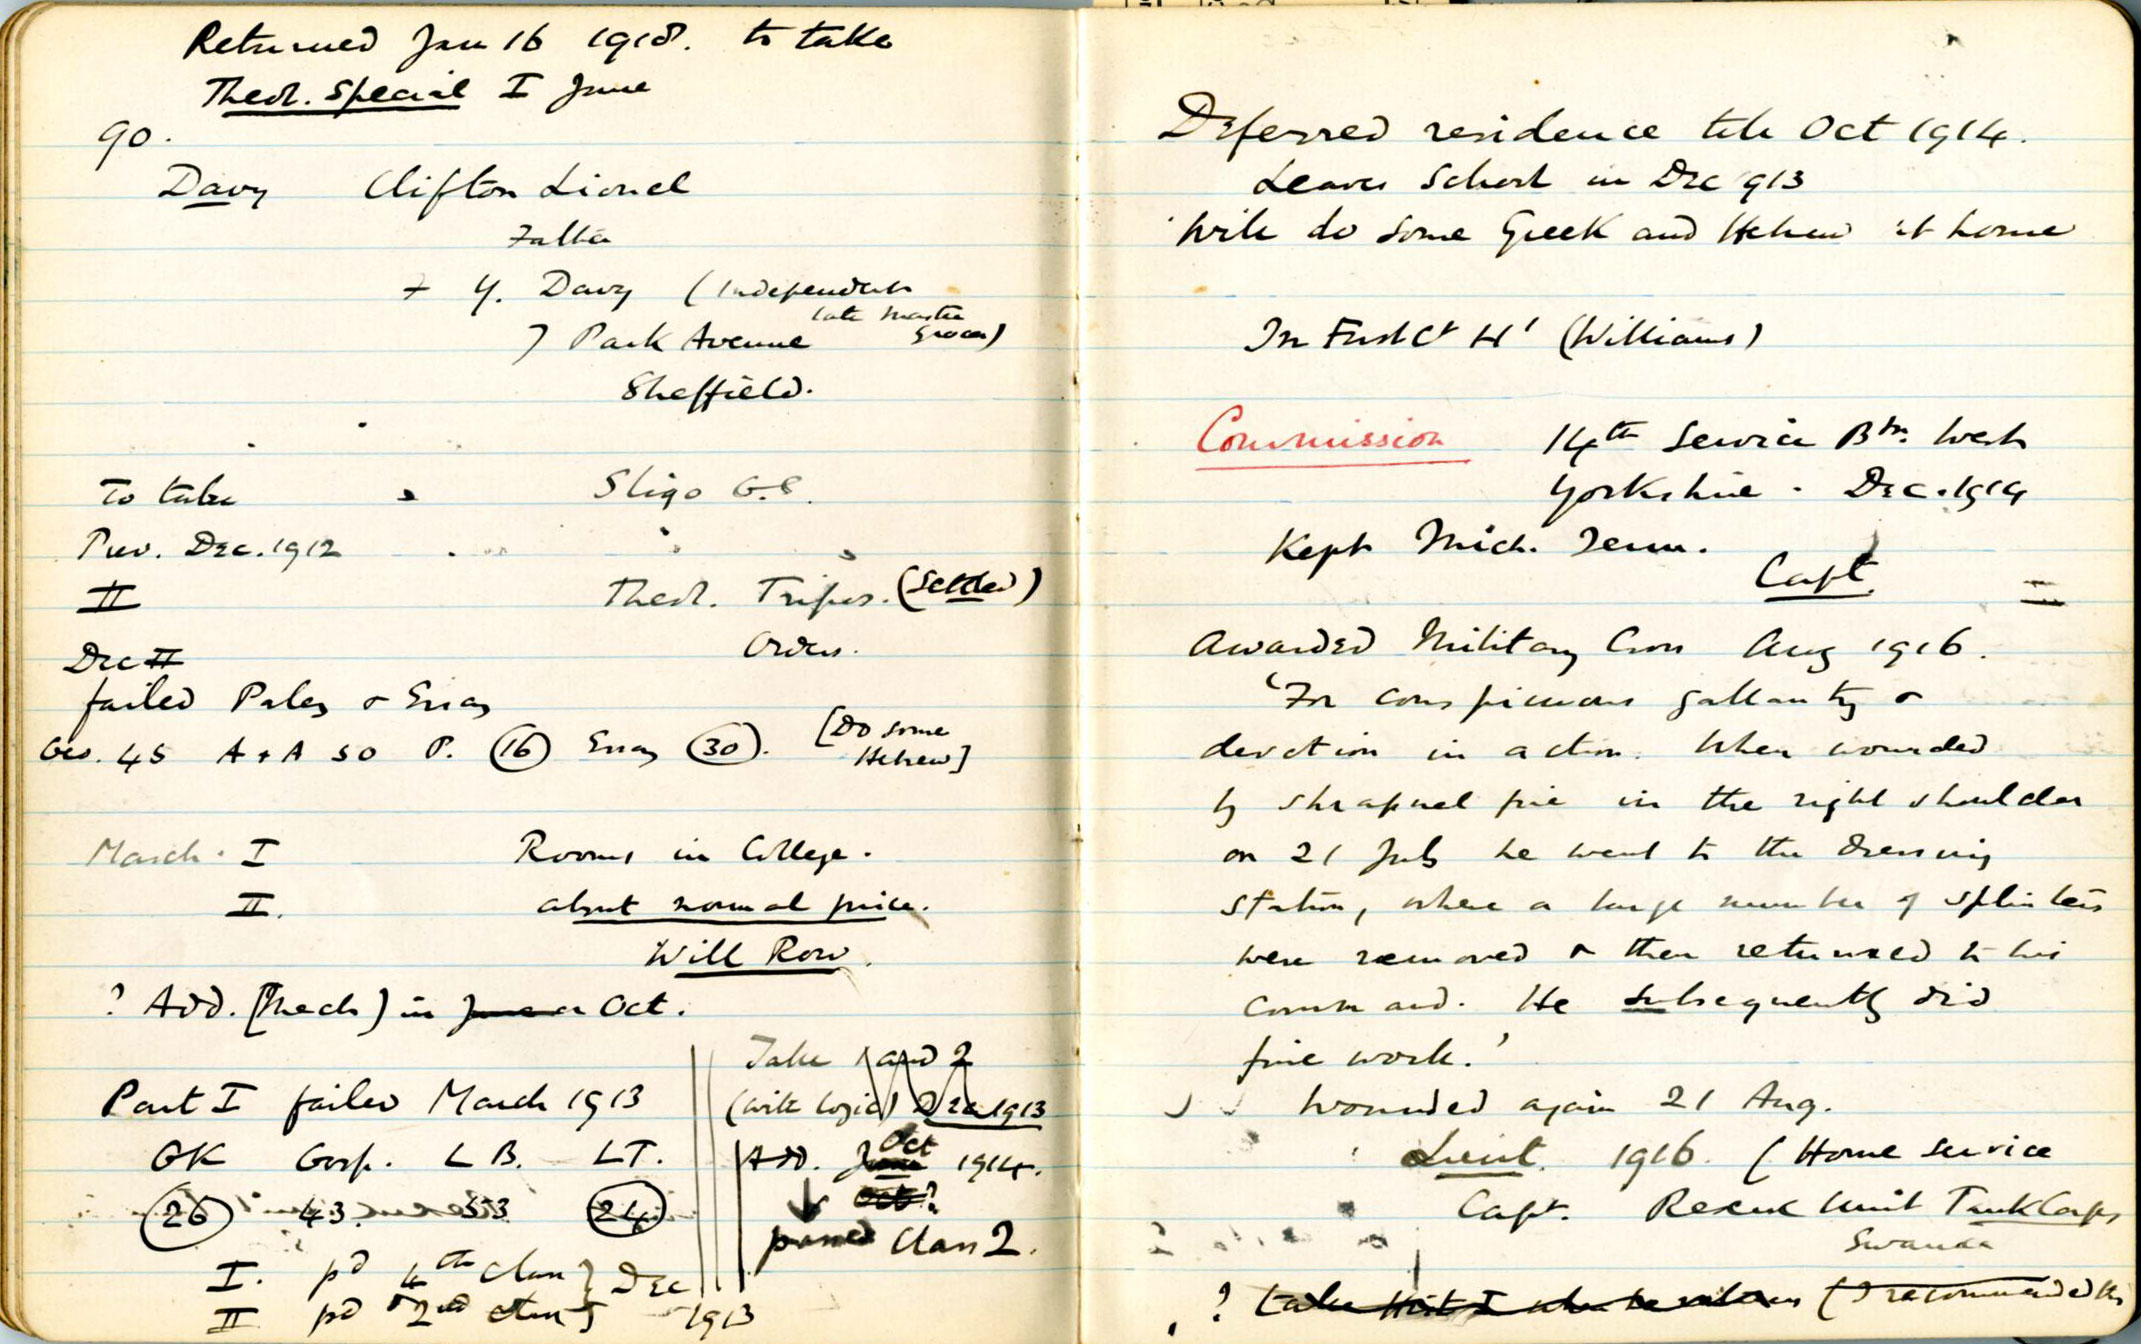 Returned Jan 16 1918. to take
Theol. Special I June
90.
Davy Clifton Lionel
Father
Y. Davy (Independent
late master
7 Park Avenue grocer)
Sheffield.
To take Sligo G.S.
Prev. Dec. 1912
II Theol. Tripos. (Settled)
Orders.
Dec II
failed Paley & Essay
Geo. 45 A + A 50 P. 16 Essay 30. [Do some
Hebrew]
March. I Rooms in College.
II. about normal price.
Will Row.
? Add. [Mech] in June or Oct.
Part I failed March 1913
GK Gosp. LB. LT.
26 43. 53 24
I. pd 4th Class } Dec
II pd 2nd Class } 1913
Take 1 and 2
(with logic) Dec 1913
Add. June Oct 1914.
Oct?
passed Class 2.
Deferred residence till Oct 1914.
Leaves School in Dec 1913
Will do some Greek and Hebrew at home
In First Ct H1 (Williams)
Commission 14th Service Btn. West
Yorkshire. Dec. 1914
Kept Mich. Term.
Capt
Awarded Military Cross Aug 1916.
'For conspicuous gallantry &
devotion in action. When wounded
by shrapnel fire in the right shoulder
on 21 July he went to the dressing
station, where a large number of splinters
were removed & then returned to his
command. He subsequently did
fine work.'
Wounded again 21 Aug.
Lieut. 1916. (Home service
Capt. Rescue Unit Tank Corps
Swanage
? take Hist I when he returns (I recommended this